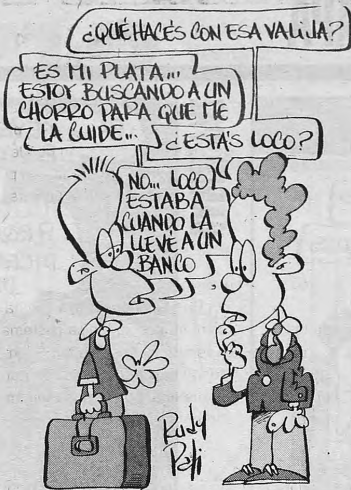 ¿QUÉ HACÉS CON ESA VALIJA?
ES MI PLATA...
ESTOY BUSCANDO A UN
CHORRO PARA QUE ME
LA CUIDE...
¿ESTÁS LOCO?
NO... LOCO
ESTABA
CUANDO LA
LLEVÉ A UN
BANCO
Rudy
Pati